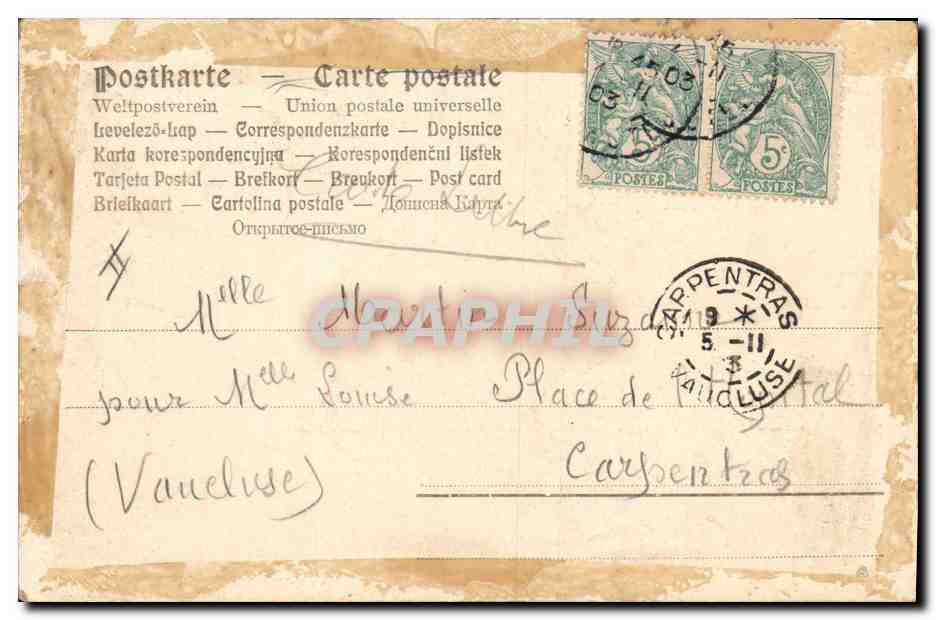 Postkarte — Carte postale
Weltpostverein — Union postale universelle
Levelező-Lap — Correspondenzkarte — Dopisnice
Karta korespondencyjna — Korespondenční lístek
Tarjeta Postal — Brefkort — Brevkort — Post card
Briefkaart — Cartolina postale — Дописна Карта
Открытое-письмо
5c
POSTES
5c
POSTES
15
11
03
CARPENTRAS
9 *
5 -11
3
VAUCLUSE
CPAPHIL.COM
Mlle Martin Suzanne
pour Mlle Louise Place de l'Hôpital
Carpentras
(Vaucluse)